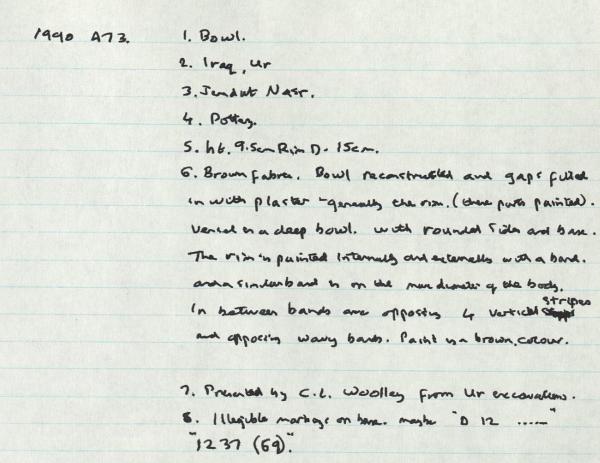 1990 A73. 1. Bowl.
2. Iraq, Ur
3. Jemdet Nasr.
4. Pottery.
5. ht. 9.5cm Rim D- 15cm.
6. Brown fabric. Bowl reconstructed and gaps filled
in with plaster - generally the rim. (these parts painted).
Vessel is a deep bowl. with rounded sides and base.
The rim is painted internally and externally with a band.
and a similar band is on the max diameter of the body.
In between bands are opposing 4 vertical stripes
and opposing wavy bands. Paint is a brown colour.
7. Presented by C.L. Woolley from Ur excavations.
8. Illegible markings on base. maybe "D 12 ......"
"1237 (69)".